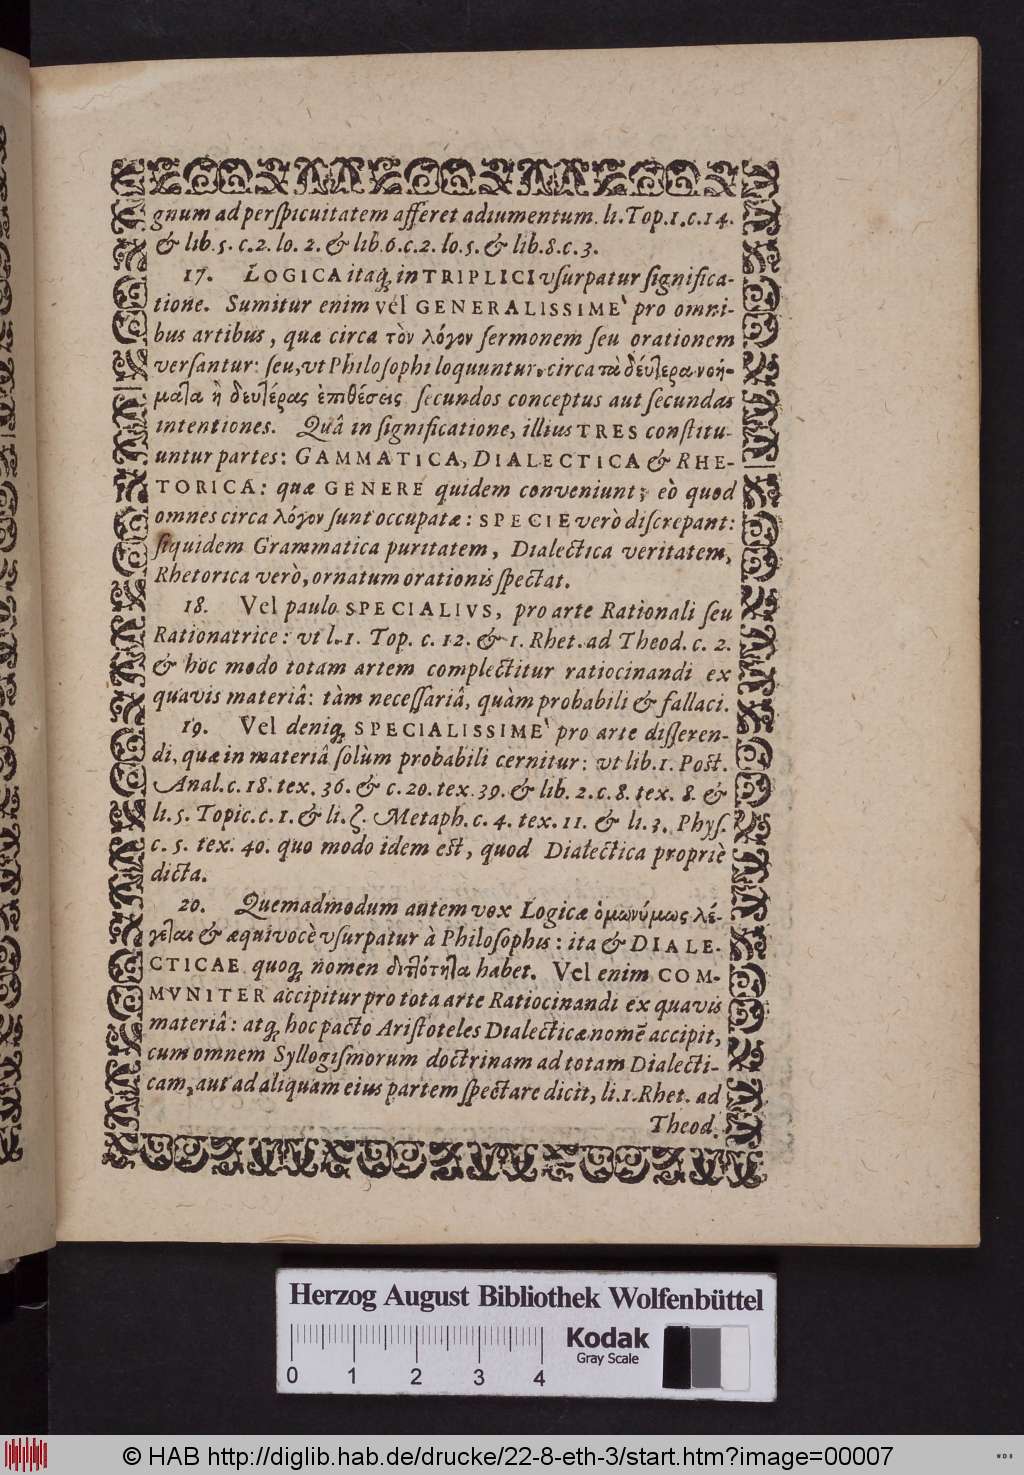 gnum ad perſpicuitatem afferet adiumentum. li. Top. 1. c. 14.
& lib. 5. c. 2. lo. 2. & lib. 6. c. 2. lo. 5. & lib. 8. c. 3.
17. LOGICA itaq́; in TRIPLICI vſurpatur ſignifica-
tione. Sumitur enim vel GENERALISSIME` pro omni-
bus artibus, quæ circa τὸν λόγον ſermonem ſeu orationem
verſantur: ſeu, vt Philoſophi loquuntur, circa τὰ δέυτερα νοή-
ματα ἢ δευτέρας ἐπιθέσεις ſecundos conceptus aut ſecundas
intentiones. Quâ in ſignificatione, illius TRES conſtitu-
untur partes: GAMMATICA, DIALECTICA & RHE-
TORICA: quæ GENERE quidem conveniunt; eò quod
omnes circa λόγον ſunt occupatæ: SPECIE verò diſcrepant:
ſiquidem Grammatica puritatem, Dialectica veritatem,
Rhetorica verò, ornatum orationis ſpectat.
18. Vel paulo SPECIALIVS, pro arte Rationali ſeu
Rationatrice: vt l. 1. Top. c. 12. & 1. Rhet. ad Theod. c. 2.
& hoc modo totam artem complectitur ratiocinandi ex
quavis materiâ: tàm neceſſariâ, quàm probabili & fallaci.
19. Vel deniq́; SPECIALISSIME` pro arte diſſeren-
di, quæ in materiâ ſolùm probabili cernitur: vt lib. 1. Poſt.
Anal. c. 18. tex. 36. & c. 20. tex. 39. & lib. 2. c. 8. tex. 8. &
li. 5. Topic. c. 1. & li. ζ. Metaph. c. 4. tex. 11. & li. 3. Phyſ.
c. 5. tex. 40. quo modo idem eſt, quod Dialectica propriè
dicta.
20. Quemadmodum autem vox Logicæ ὁμωνύμως λέ-
γεται & æquivocè vſurpatur à Philoſophis: ita & DIALE-
CTICAE quoq́; nomen διπλότητα habet. Vel enim COM-
MVNITER accipitur pro tota arte Ratiocinandi ex quavis
materiâ: atq́; hoc pacto Ariſtoteles Dialecticæ nomẽ accipit,
cum omnem Syllogiſmorum doctrinam ad totam Dialecti-
cam, aut ad aliquam eius partem ſpectare dicit, li. 1. Rhet. ad
Theod.
Herzog August Bibliothek Wolfenbüttel
0 1 2 3 4
Kodak
Gray Scale
© HAB http://diglib.hab.de/drucke/22-8-eth-3/start.htm?image=00007